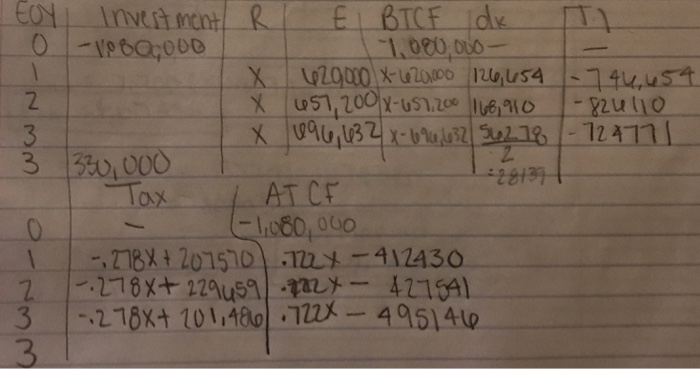 EOY Investment R E BTCF dk T.I
0 -1,080,000 -1,080,000 — —
1 X 620,000 X-620,000 126,654 -746,654
2 X 657,200 X-657,200 168,910 -826110
3 X 696,632 X-696,632 56278 -724771
3 330,000 2
=28139
Tax ATCF
0 — -1,080,000
1 -.278X + 207570 .722X - 412430
2 -.278X + 229659 .722X - 427541
3 -.278X + 201,486 .722X - 495146
3